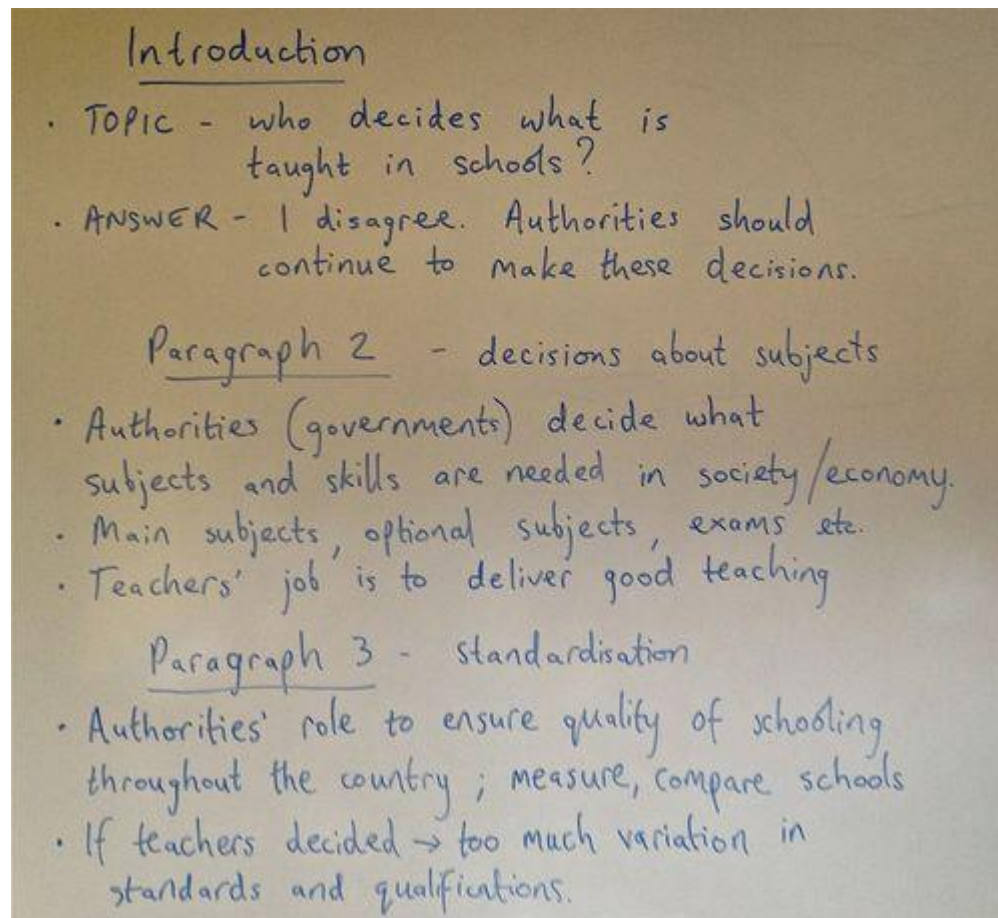 Introduction
· TOPIC - who decides what is
taught in schools?
· ANSWER - I disagree. Authorities should
continue to make these decisions.
Paragraph 2 - decisions about subjects
· Authorities (governments) decide what
subjects and skills are needed in society/economy.
· Main subjects, optional subjects, exams etc.
· Teachers' job is to deliver good teaching
Paragraph 3 - standardisation
· Authorities' role to ensure quality of schooling
throughout the country; measure, compare schools
· If teachers decided → too much variation in
standards and qualifications.